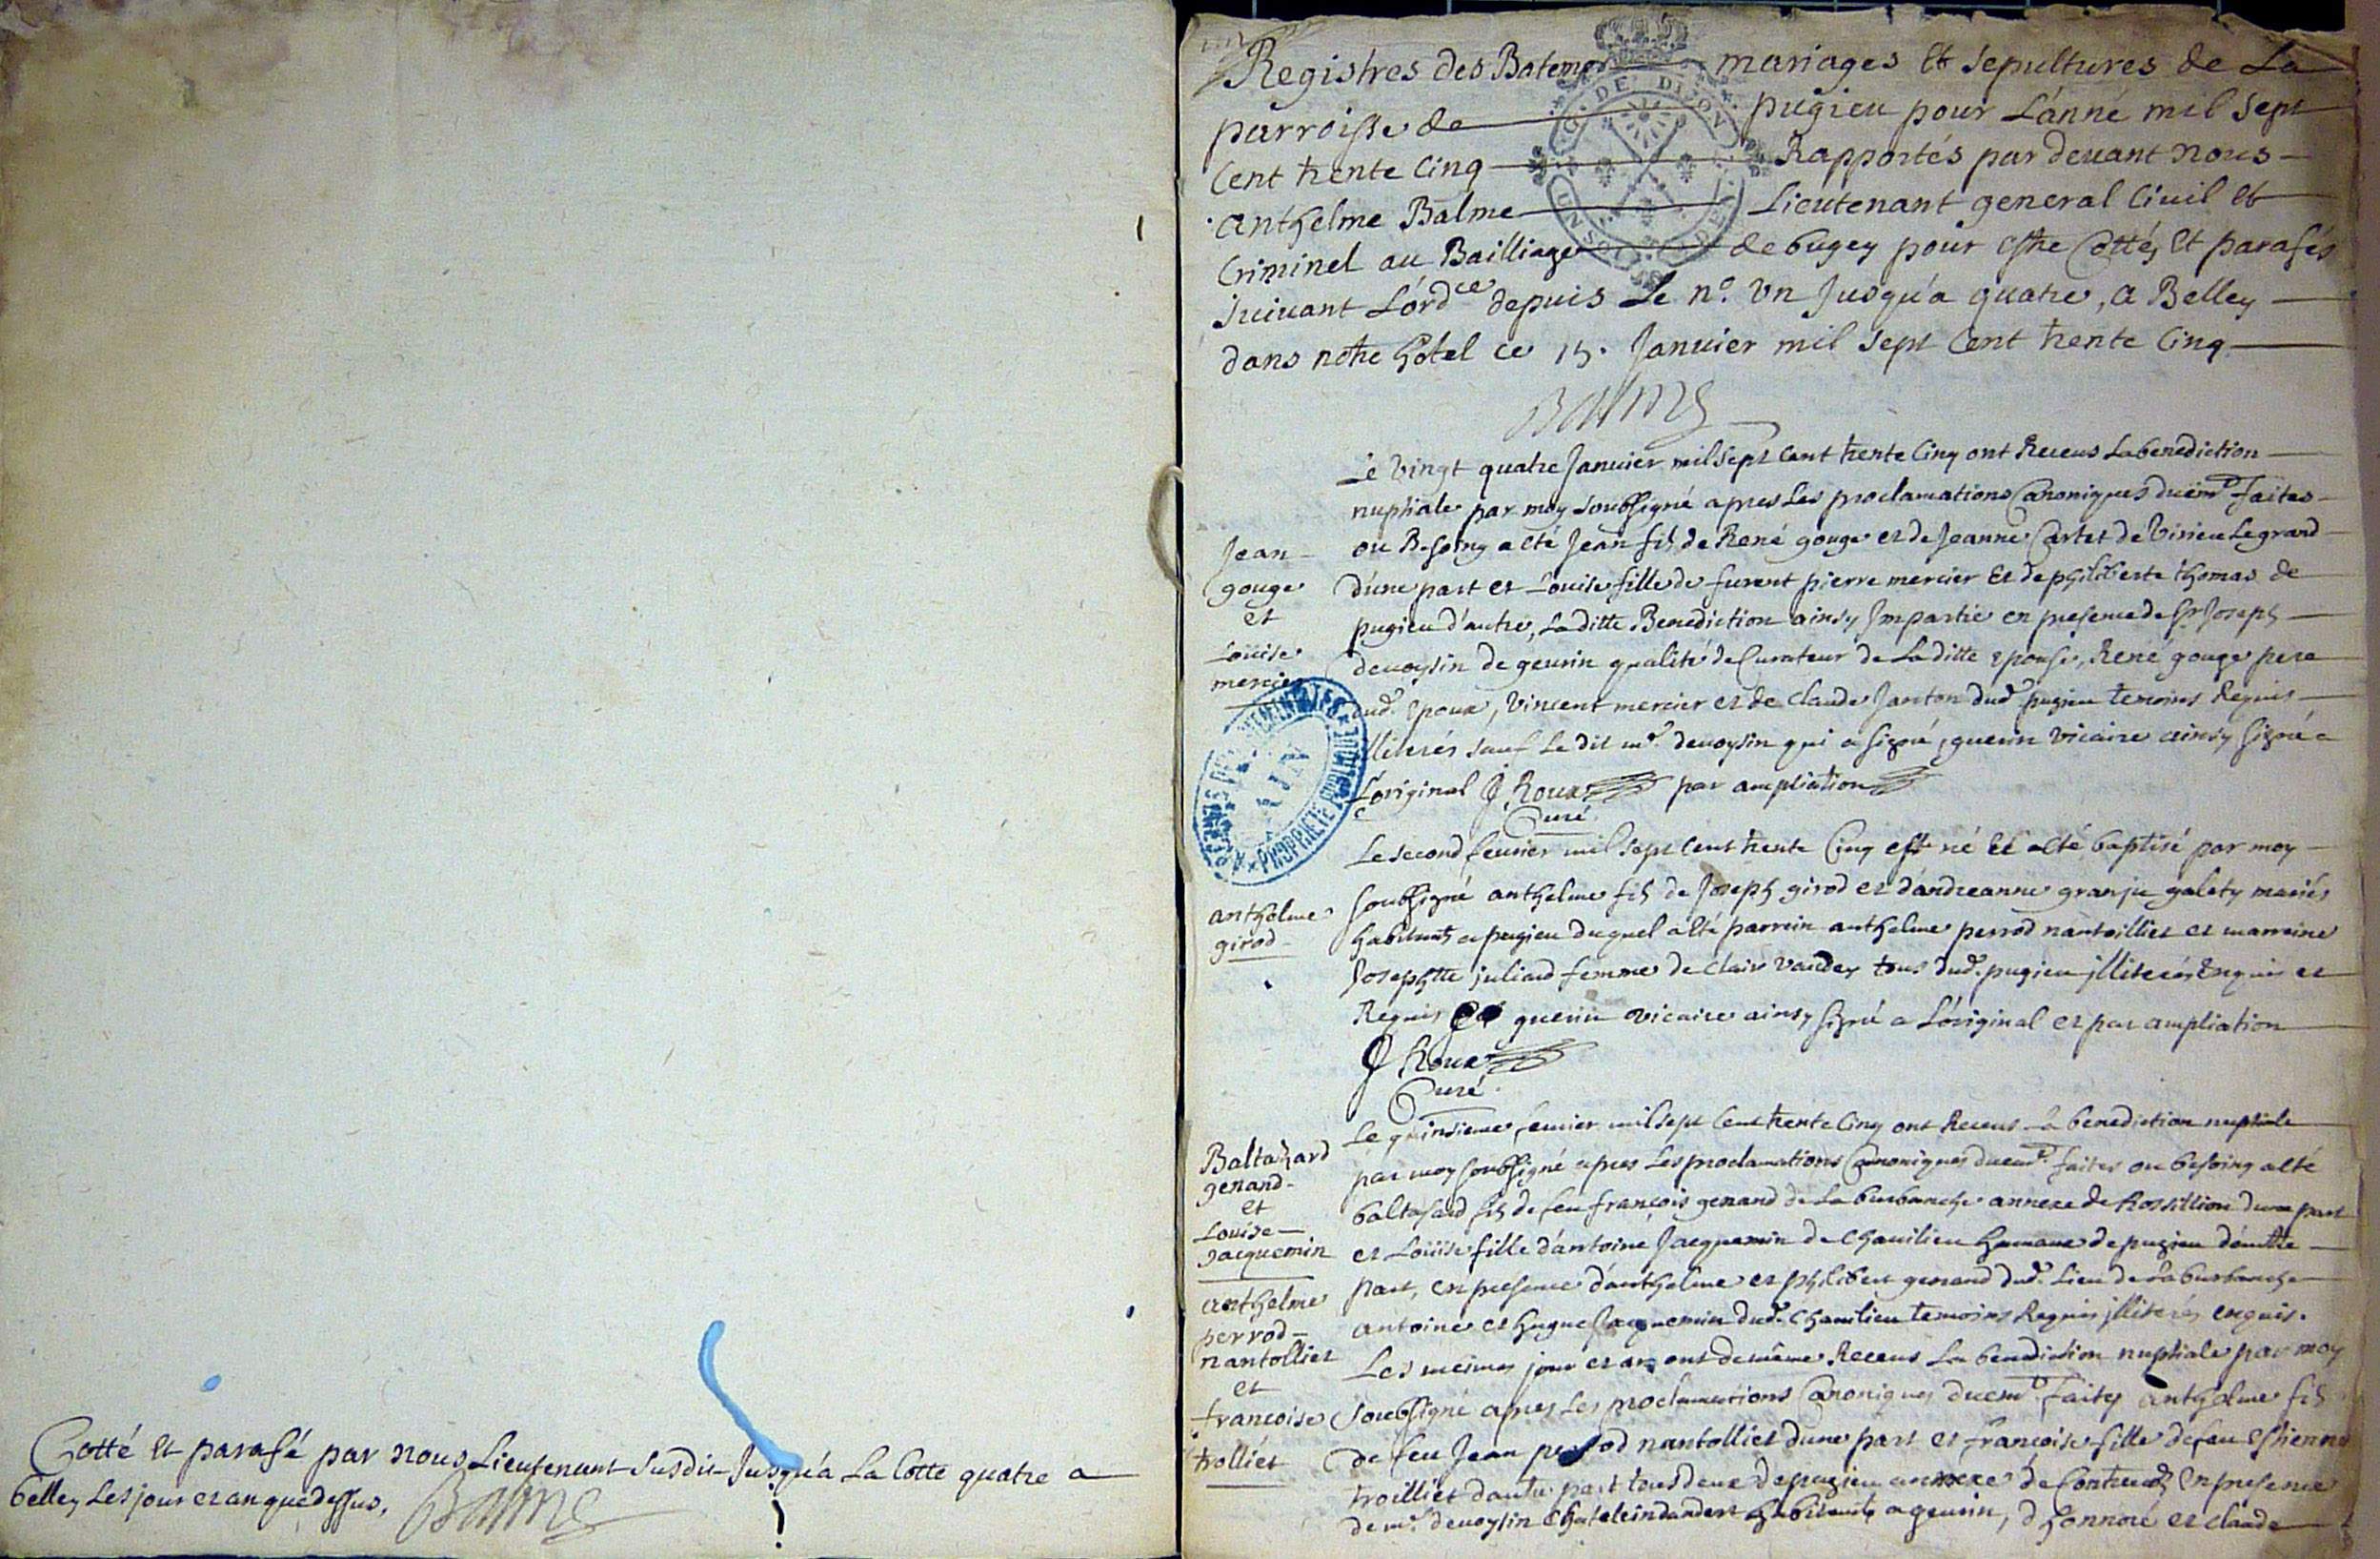 Cotté et parafé par nous Lieutenant susdit Jusqu'a La Cotte quatre a
belley Les jour et an que dessus.
Balme
Registres des Batemes mariages et sepultures de La
parroisse de pugieu pour L'anné mil sept
Cent trente Cinq Rapportés par devant nous
anthelme Balme Lieutenant general Civil et
Criminel au Bailliage de bugey pour estre Cottés et parafés
suivant L'ord.ce depuis Le n.o Un Jusqu'a quatre, a Belley
dans notre hôtel ce 15. Janvier mil sept Cent trente Cinq
Balme
G. DE DIJON
UN SOL
Jean
gouge
et
Loüise
mercier
Le Vingt quatre Janvier mil sept Cent trente Cinq ont Receus La benediction
nuptiale par moy soubsigné apres Les proclamations Canoniques duëmt faites
ou Besoing a été Jean fils de René gouge et de Jeanne Cartet de Virieu Le grand
d'une part et Louise fille de furent pierre mercier et de philiberte thomas de
pugieu d'autre, La ditte Benediction ainsy Jmpartie en presence de Sr Joseph
devoysin de geurin qualité de Curateur de La ditte epouse, René gouge pere
dud. Epoux, Vincent mercier et de Claude Janton dud. pugieu temoins Requis
illiterés sauf Le dit mr. devoysin qui a signé, guerin Vicaire ainsy signé a
L'original J Roux par ampliation
Curé
ARCHIVES DEPARTEMENTALES
AIN
PROPRIETE PUBLIQUE
anthelme
girod
Le second fevrier mil sept Cent trente Cinq est né et a été baptisé par moy
soubsigné anthelme fils de Joseph girod et d'andreanne granju galety mariés
habitants a pugieu duquel a été parrein anthelme perrod nantoillier et marreine
Josephtte juliand femme de Clair Vardey tous dud. pugieu jlliterés Enquis et
Requis guerin vicaire ainsy signé a L'original et par ampliation
J Roux
Curé
Baltazard
genand
et
Louise
Jacquemin
Le quinsieme fevrier mil sept Cent trente Cinq ont Receus La benediction nuptiale
par moy soubsigné apres Les proclamations Canoniques duemt. faites ou besoing a été
baltasard fils de feu françois genand de La burbanche annexe de Rossillion dune part
et Loüise fille d'antoine Jacquemin de Chavilieu hameau de pugieu d'autre
part, en presence d'anthelme et philibert genand dud. Lieu de La burbanche
antoine et hugue Jacquemin dud. Chavilieu temoins Requis jlliterés enquis.
anthelme
perrod
nantollier
et
francoise
trollier
Les mesmes jour et an ont de même Receus La benediction nuptiale par moy
soubsigné apres Les proclamations Canoniques duemt. faites anthelme fils
de feu Jean perrod nantollier dune part et francoise fille de feu Estienne
troillier dautre part tous deux de pugieu annexe de Contrevoz En presence
de mr. devoysin Chatelein dandert habitant a geurin, d'honnoré et claude